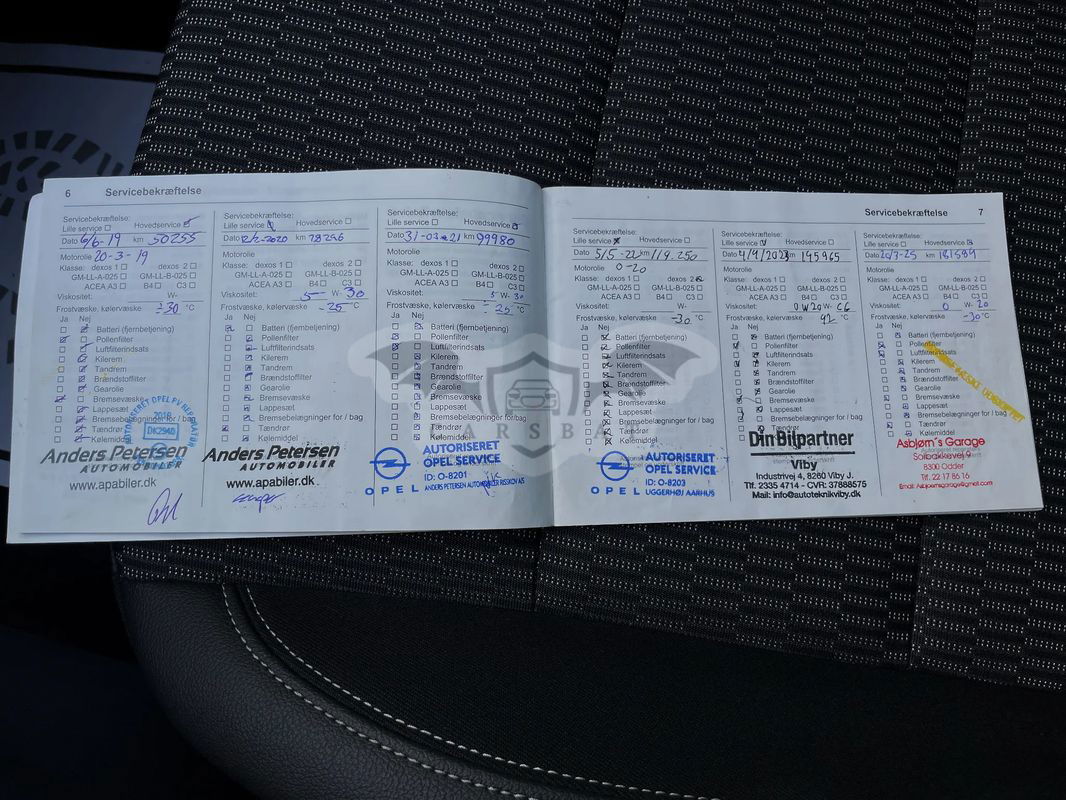 6 Servicebekræftelse
Servicebekræftelse:
Lille service Hovedservice
Dato 6/6-19 km 50255
Motorolie 20-3-19
Klasse: dexos 1 dexos 2
GM-LL-A-025 GM-LL-B-025
ACEA A3 B4 C3
Viskositet: W-
Frostvæske, kølervæske -30 °C
Ja Nej
Batteri (fjernbetjening)
Pollenfilter
Luftfilterindsats
Kilerem
Tandrem
Brændstoffilter
Gearolie
Bremsevæske
Lappesæt
Bremsebelægninger for / bag
Tændrør
Kølemiddel
2018
DK2940
Anders Petersen
AUTOMOBILER
www.apabiler.dk
Servicebekræftelse:
Lille service Hovedservice
Dato km 78296
Motorolie
Klasse: dexos 1 dexos 2
GM-LL-A-025 GM-LL-B-025
ACEA A3 B4 C3
Viskositet: 5 W- 30
Frostvæske, kølervæske -25 °C
Ja Nej
Batteri (fjernbetjening)
Pollenfilter
Luftfilterindsats
Kilerem
Tandrem
Brændstoffilter
Gearolie
Bremsevæske
Lappesæt
Bremsebelægninger for / bag
Tændrør
Kølemiddel
Anders Petersen
AUTOMOBILER
www.apabiler.dk
Servicebekræftelse:
Lille service Hovedservice
Dato 31-03-21 km 99980
Motorolie
Klasse: dexos 1 dexos 2
GM-LL-A-025 GM-LL-B-025
ACEA A3 B4 C3
Viskositet: 5 W- 30
Frostvæske, kølervæske -25 °C
Ja Nej
Batteri (fjernbetjening)
Pollenfilter
Luftfilterindsats
Kilerem
Tandrem
Brændstoffilter
Gearolie
Bremsevæske
Lappesæt
Bremsebelægninger for / bag
Tændrør
Kølemiddel
AUTORISERET
OPEL SERVICE
ID: O-8201
OPEL ANDERS PETERSEN AUTOMOBILER RISSKOV A/S
Servicebekræftelse 7
Servicebekræftelse:
Lille service Hovedservice
Dato 5/5-22 km 119.250
Motorolie 0-20
Klasse: dexos 1 dexos 2
GM-LL-A-025 GM-LL-B-025
ACEA A3 B4 C3
Viskositet: W-
Frostvæske, kølervæske -30 °C
Ja Nej
Batteri (fjernbetjening)
Pollenfilter
Luftfilterindsats
Kilerem
Tandrem
Brændstoffilter
Gearolie
Bremsevæske
Lappesæt
Bremsebelægninger for / bag
Tændrør
Kølemiddel
AUTORISERET
OPEL SERVICE
ID: O-8203
OPEL UGGERHØJ AARHUS
Servicebekræftelse:
Lille service Hovedservice
Dato 4/9/2023 km 145965
Motorolie
Klasse: dexos 1 dexos 2
GM-LL-A-025 GM-LL-B-025
ACEA A3 B4 C3
Viskositet: 0W20 W- C6
Frostvæske, kølervæske 42 °C
Ja Nej
Batteri (fjernbetjening)
Pollenfilter
Luftfilterindsats
Kilerem
Tandrem
Brændstoffilter
Gearolie
Bremsevæske
Lappesæt
Bremsebelægninger for / bag
Tændrør
Din Bilpartner
Viby
Industrivej 4, 8260 Viby J.
Tlf. 2335 4714 - CVR: 37888575
Mail: info@autoteknikviby.dk
Servicebekræftelse:
Lille service Hovedservice
Dato km 181589
Motorolie
Klasse: dexos 1 dexos 2
GM-LL-A-025 GM-LL-B-025
ACEA A3 B4 C3
Viskositet: 0 W- 20
Frostvæske, kølervæske -30 °C
Ja Nej
Batteri (fjernbetjening)
Pollenfilter
Luftfilterindsats
Kilerem
Tandrem
Brændstoffilter
Gearolie
Bremsevæske
Lappesæt
Bremsebelægninger for / bag
Tændrør
Kølemiddel
Asbjørn's Garage
Solbakkevej 9
8300 Odder
Tlf. 22 17 86 16
CARSBA